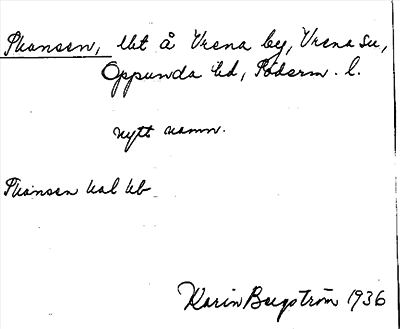 Skansen, lht å Vrena by, Vrena sn,
Oppunda hd, Söderm. l.
nytt namn.
Skansen
Karin Bergström 1936